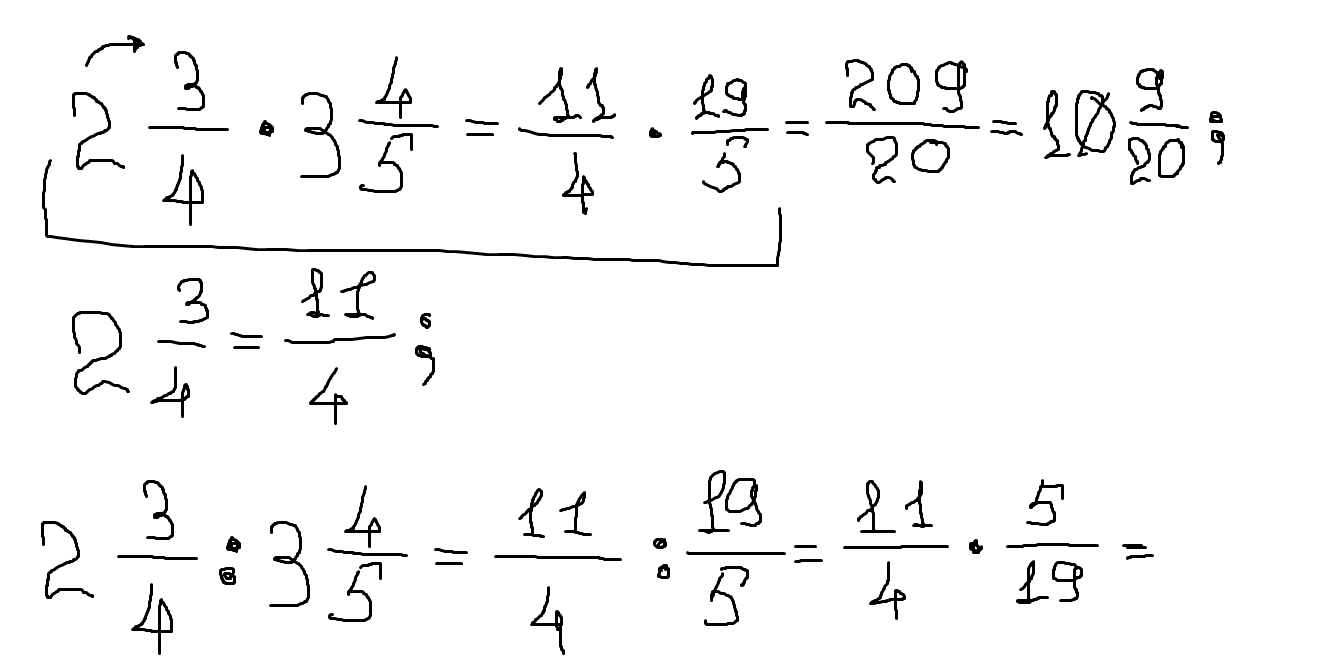 2 3/4 · 3 4/5 = 11/4 · 19/5 = 209/20 = 10 9/20 ;
2 3/4 = 11/4 ;
2 3/4 : 3 4/5 = 11/4 : 19/5 = 11/4 · 5/19 =